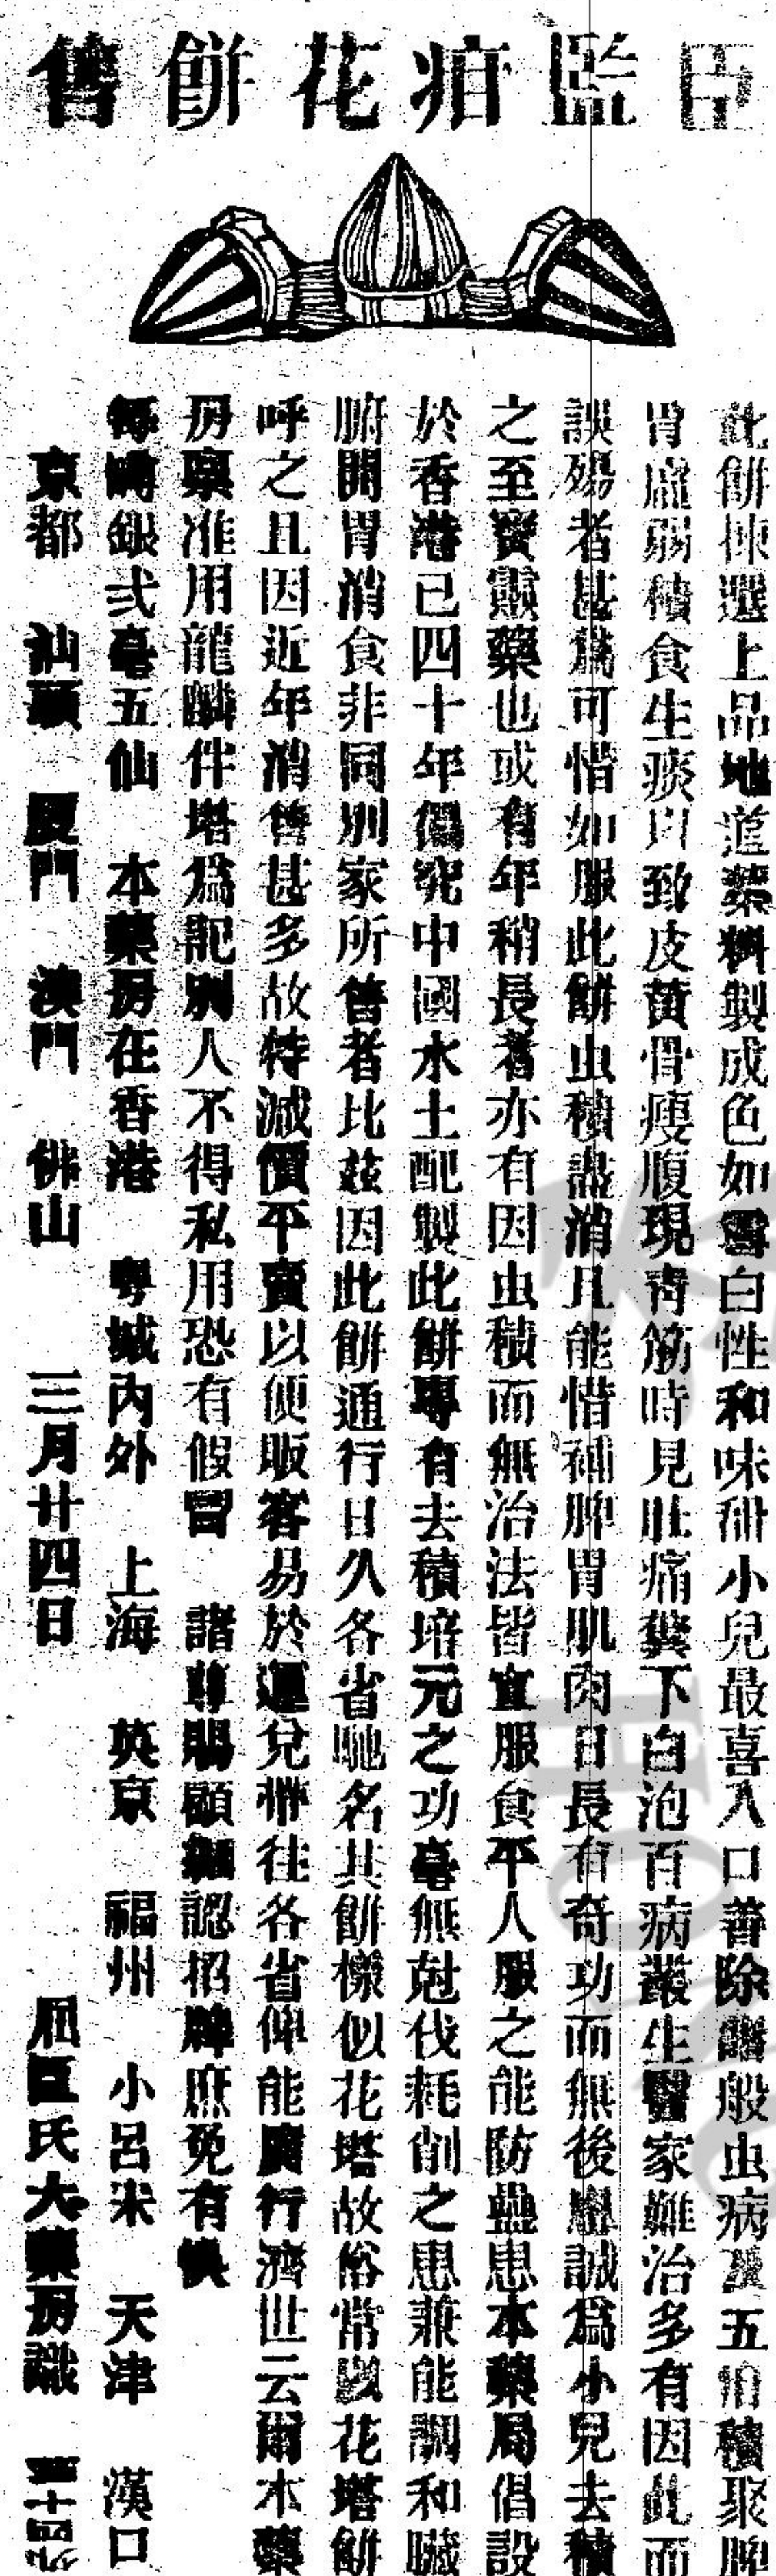 臣監疳花餅售
此餅揀選上品地道藥料製成色如雪白性和味甜小兒最喜入口善除諸般虫病及五疳積聚脾
胃虛弱積食生痰以致皮黃骨瘦腹現青筋時見肚痛糞下白泡百病叢生醫家難治多有因此而
誤殤者甚爲可惜如服此餅虫積盡消且能惜補脾胃肌肉日長有奇功而無後患誠爲小兒去積
之至寶靈藥也或有年稍長者亦有因虫積而無治法皆宜服食平人服之能防蠱患本藥局倡設
於香港已四十年僞究中國水土配製此餅專有去積培元之功毫無尅伐耗削之患兼能調和臟
腑開胃消食非同別家所售者比茲因此餅通行日久各省馳名其餅樣似花塔故俗常以花塔餅
呼之且因近年消售甚多故特減價平賣以便販客易於運兌帶往各省俾能廣行濟世云爾本藥
房稟准用龍麟伴塔爲記別人不得私用恐有假冒 諸尊賜顧細認招牌庶免有悞
每樽銀弍毫五仙 本藥房在香港 粵城內外 上海 英京 福州 小呂宋 天津 漢口
京都 汕頭 厦門 澳門 佛山 三月廿四日 屈臣氏大藥房識